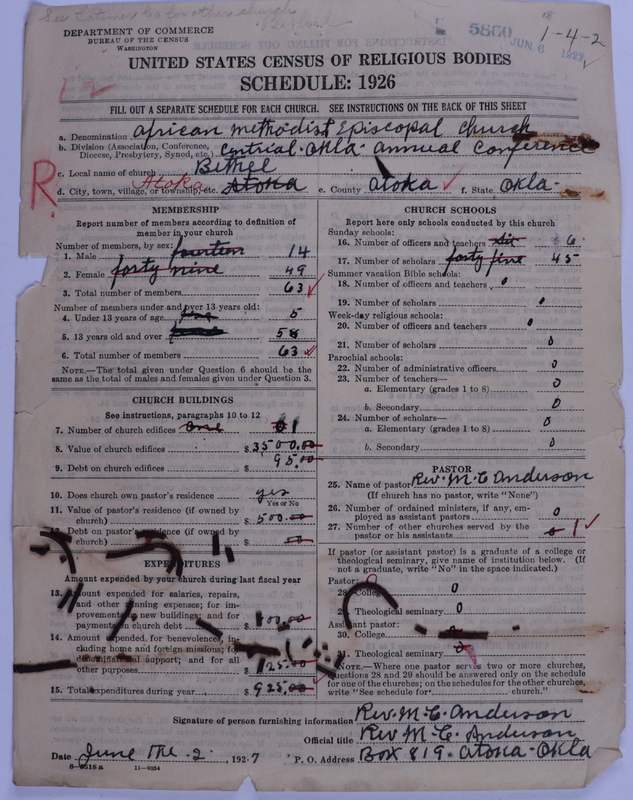 See Latimer Co for other church
DEPARTMENT OF COMMERCE
BUREAU OF THE CENSUS
WASHINGTON
5860
JUN 6 1927
18
1-4-2
UNITED STATES CENSUS OF RELIGIOUS BODIES
SCHEDULE: 1926
FILL OUT A SEPARATE SCHEDULE FOR EACH CHURCH. SEE INSTRUCTIONS ON THE BACK OF THIS SHEET
a. Denomination African Methodist Episcopal Church
b. Division (Association, Conference, Diocese, Presbytery, Synod, etc.) Central Okla Annual Conference
c. Local name of church Bethel
R.
d. City, town, village, or township, etc. Atoka Atoka e. County Atoka f. State Okla-
MEMBERSHIP
Report number of members according to definition of member in your church
Number of members, by sex:
1. Male fourteen 14
2. Female forty nine 49
3. Total number of members 63
Number of members under and over 13 years old:
4. Under 13 years of age five 5
5. 13 years old and over 58
6. Total number of members 63
NOTE.—The total given under Question 6 should be the same as the total of males and females given under Question 3.
CHURCH BUILDINGS
See instructions, paragraphs 10 to 12
7. Number of church edifices one 1
8. Value of church edifices $3500.00
9. Debt on church edifices $ 95.00
10. Does church own pastor's residence yes
Yes or No
11. Value of pastor's residence (if owned by church) $ 500.00
12. Debt on pastor's residence (if owned by church) $
EXPENDITURES
Amount expended by your church during last fiscal year
13. Amount expended for salaries, repairs, and other running expenses; for improvements, new buildings; and for payments on church debt $ 800.00
14. Amount expended for benevolences, including home and foreign missions; for denominational support; and for all other purposes $ 125.00
15. Total expenditures during year $ 925.00
CHURCH SCHOOLS
Report here only schools conducted by this church
Sunday schools:
16. Number of officers and teachers six 6
17. Number of scholars forty five 45
Summer vacation Bible schools:
18. Number of officers and teachers 0
19. Number of scholars 0
Week-day religious schools:
20. Number of officers and teachers 0
21. Number of scholars 0
Parochial schools:
22. Number of administrative officers 0
23. Number of teachers—
a. Elementary (grades 1 to 8) 0
b. Secondary 0
24. Number of scholars— 0
a. Elementary (grades 1 to 8)
b. Secondary 0
PASTOR
25. Name of pastor Rev. M. C. Anderson
(If church has no pastor, write "None")
26. Number of ordained ministers, if any, employed as assistant pastors 0
27. Number of other churches served by the pastor or his assistants 0 1
If pastor (or assistant pastor) is a graduate of a college or theological seminary, give name of institution below. (If not a graduate, write "No" in the space indicated.)
Pastor:
28. College 0
29. Theological seminary 0
Assistant pastor:
30. College
31. Theological seminary
NOTE.—Where one pastor serves two or more churches, questions 28 and 29 should be answered only on the schedule for one of the churches; on the schedules for the other churches, write "See schedule for church."
Signature of person furnishing information Rev. M. C. Anderson
Official title Rev M. C. Anderson
Date June the 2, 1927 P. O. Address Box 819- Atoka-Okla
8—9518a 11—9354